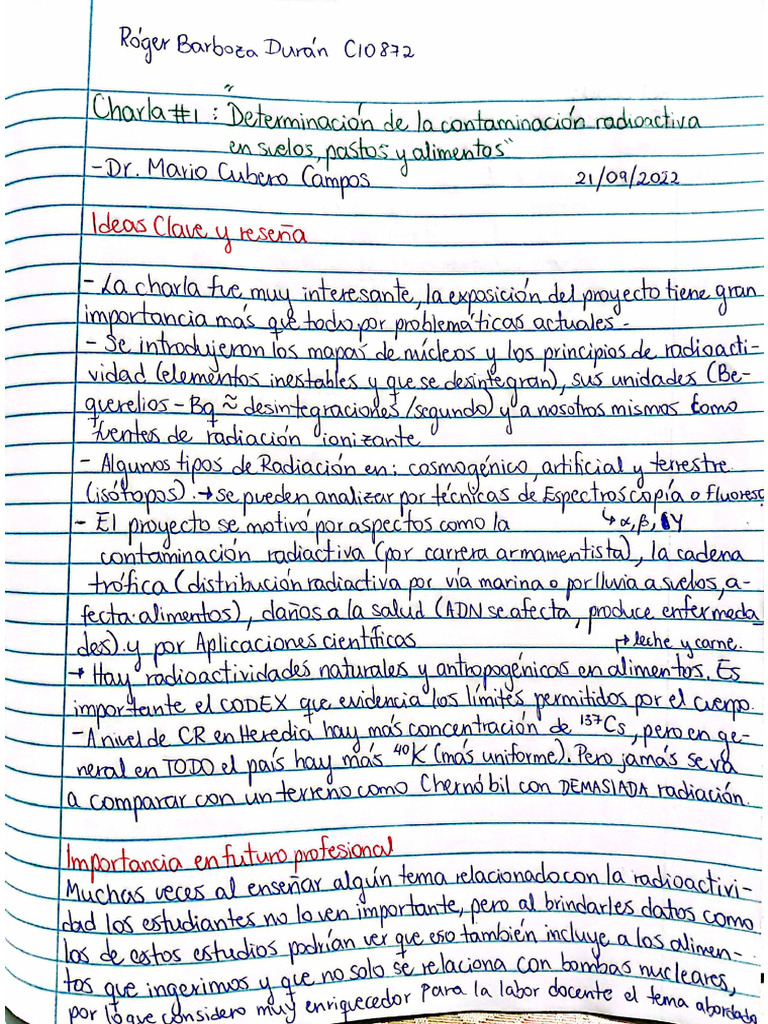 Róger Barboza Durán C10872
Charla #1: "Determinación de la contaminación radioactiva
en suelos, pastos y alimentos"
-Dr. Mario Cubero Campos 21/09/2022
Ideas Clave y reseña
- La charla fue muy interesante, la exposición del proyecto tiene gran
importancia más que todo por problemáticas actuales-
- Se introdujeron los mapas de núcleos y los principios de radioacti-
vidad (elementos inestables y que se desintegran), sus unidades (Be-
querelios - Bq ≈ desintegraciones/segundo) y a nosotros mismos como
fuentes de radiación ionizante
- Algunos tipos de Radiación en: cosmogénico, artificial y terrestre
(isótopos). → se pueden analizar por técnicas de Espectroscopía o fluoresc
↳ α, β, γ
- El proyecto se motivó por aspectos como la
contaminación radiactiva (por carrera armamentista), la cadena
trófica (distribución radiactiva por vía marina o por lluvia a suelos, a-
fecta alimentos), daños a la salud (ADN se afecta, produce enfermeda
des) y por Aplicaciones científicas
↱ leche y carne.
→ Hay radioactividades naturales y antropogénicas en alimentos. Es
importante el CODEX que evidencia los límites permitidos por el cuerpo.
- A nivel de CR en Heredia hay más concentración de ¹³⁷Cs, pero en ge-
neral en TODO el país hay más ⁴⁰K (más uniforme). Pero jamás se va
a comparar con un terreno como Chernóbil con DEMASIADA radiación.
Importancia en futuro profesional
Muchas veces al enseñar algún tema relacionado con la radioactivi-
dad los estudiantes no lo ven importante, pero al brindarles datos como
los de estos estudios podrían ver que eso también incluye a los alimen-
tos que ingerimos y que no solo se relaciona con bombas nucleares,
por lo que considero muy enriquecedor para la labor docente el tema abordado